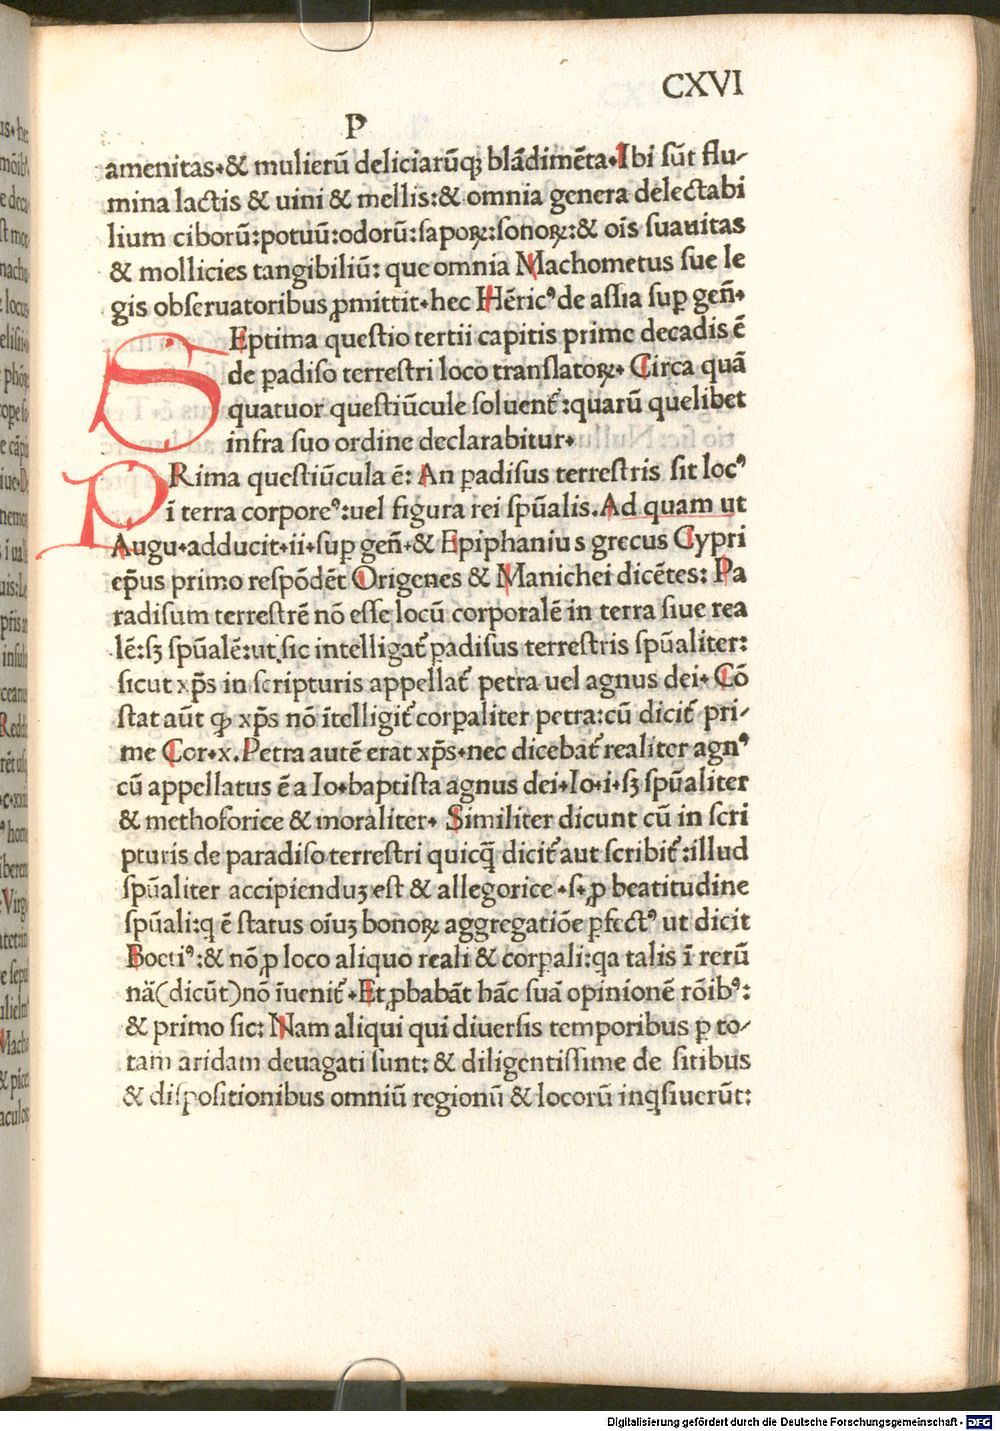 CXVI
P
amenitas•& mulierū deliciarūqꝫ blādimēta•Ibi ſūt flu-
mina lactis & uini & mellis:& omnia genera delectabi
lium ciborū:potuū:odorū:ſapoꝝ:ſonoꝝ:& oīs ſuauitas
& mollicies tangibiliū: que omnia Machometus ſue le
gis obſeruatoribus ꝓmittit•hec Hēricꝰ de aſſia ſuꝑ geñ•
SEptima queſtio tertii capitis prime decadis ē
de ꝑadiſo terreſtri loco tranſlatoꝝ• Circa quā
quatuor queſtiūcule ſoluent᷑:quarū quelibet
infra ſuo ordine declarabitur•
PRima queſtiūcula ē: An ꝑadiſus terreſtris ſit locꝰ
ī terra corporeꝰ:uel figura rei ſpūalis.Ad quam ut
Augu•adducit•ii•ſuꝑ geñ•& Epiphanius grecus Cypri
ep̄us primo reſpōdēt Origenes & Manichei dicētes: Pa
radiſum terreſtrē nō eſſe locū corporalē in terra ſiue rea
lē:ſꝫ ſpūalē:ut ſic intelligat᷑ ꝑadiſus terreſtris ſpūaliter:
ſicut xp̄s in ſcripturis appellat᷑ petra uel agnus dei• Cō
ſtat aūt ꝙ xp̄s nō ītelligit᷑ corꝑaliter petra:cū dicit᷑ pri-
me Cor•x.Petra autē erat xp̄s•nec dicebat᷑ realiter agnꝰ
cū appellatus ē a Io•baptiſta agnus dei•Io•i•ſꝫ ſpūaliter
& methoforice & moraliter• Similiter dicunt cū in ſcri
pturis de paradiſo terreſtri quicq̄ dicit᷑ aut ſcribit᷑:illud
ſpūaliter accipienduꝫ eſt & allegorice •ſ•ꝓ beatitudine
ſpūali:q ē ſtatus oīuꝫ bonoꝝ aggregatiōe ꝑfectꝰ ut dicit
Boetiꝰ:& nō ꝓ loco aliquo reali & corꝑali:qa talis ī rerū
nā(dicūt)nō īuenit᷑•Et ꝓbabāt hāc ſuā opinionē rōibꝰ:
& primo ſic: Nam aliqui qui diuerſis temporibus ꝑ to-
tam aridam deuagati ſunt: & diligentiſſime de ſitibus
& diſpoſitionibus omniū regionū & locorū inqſiuerūt:
Digitalisierung gefördert durch die Deutsche Forschungsgemeinschaft - DFG